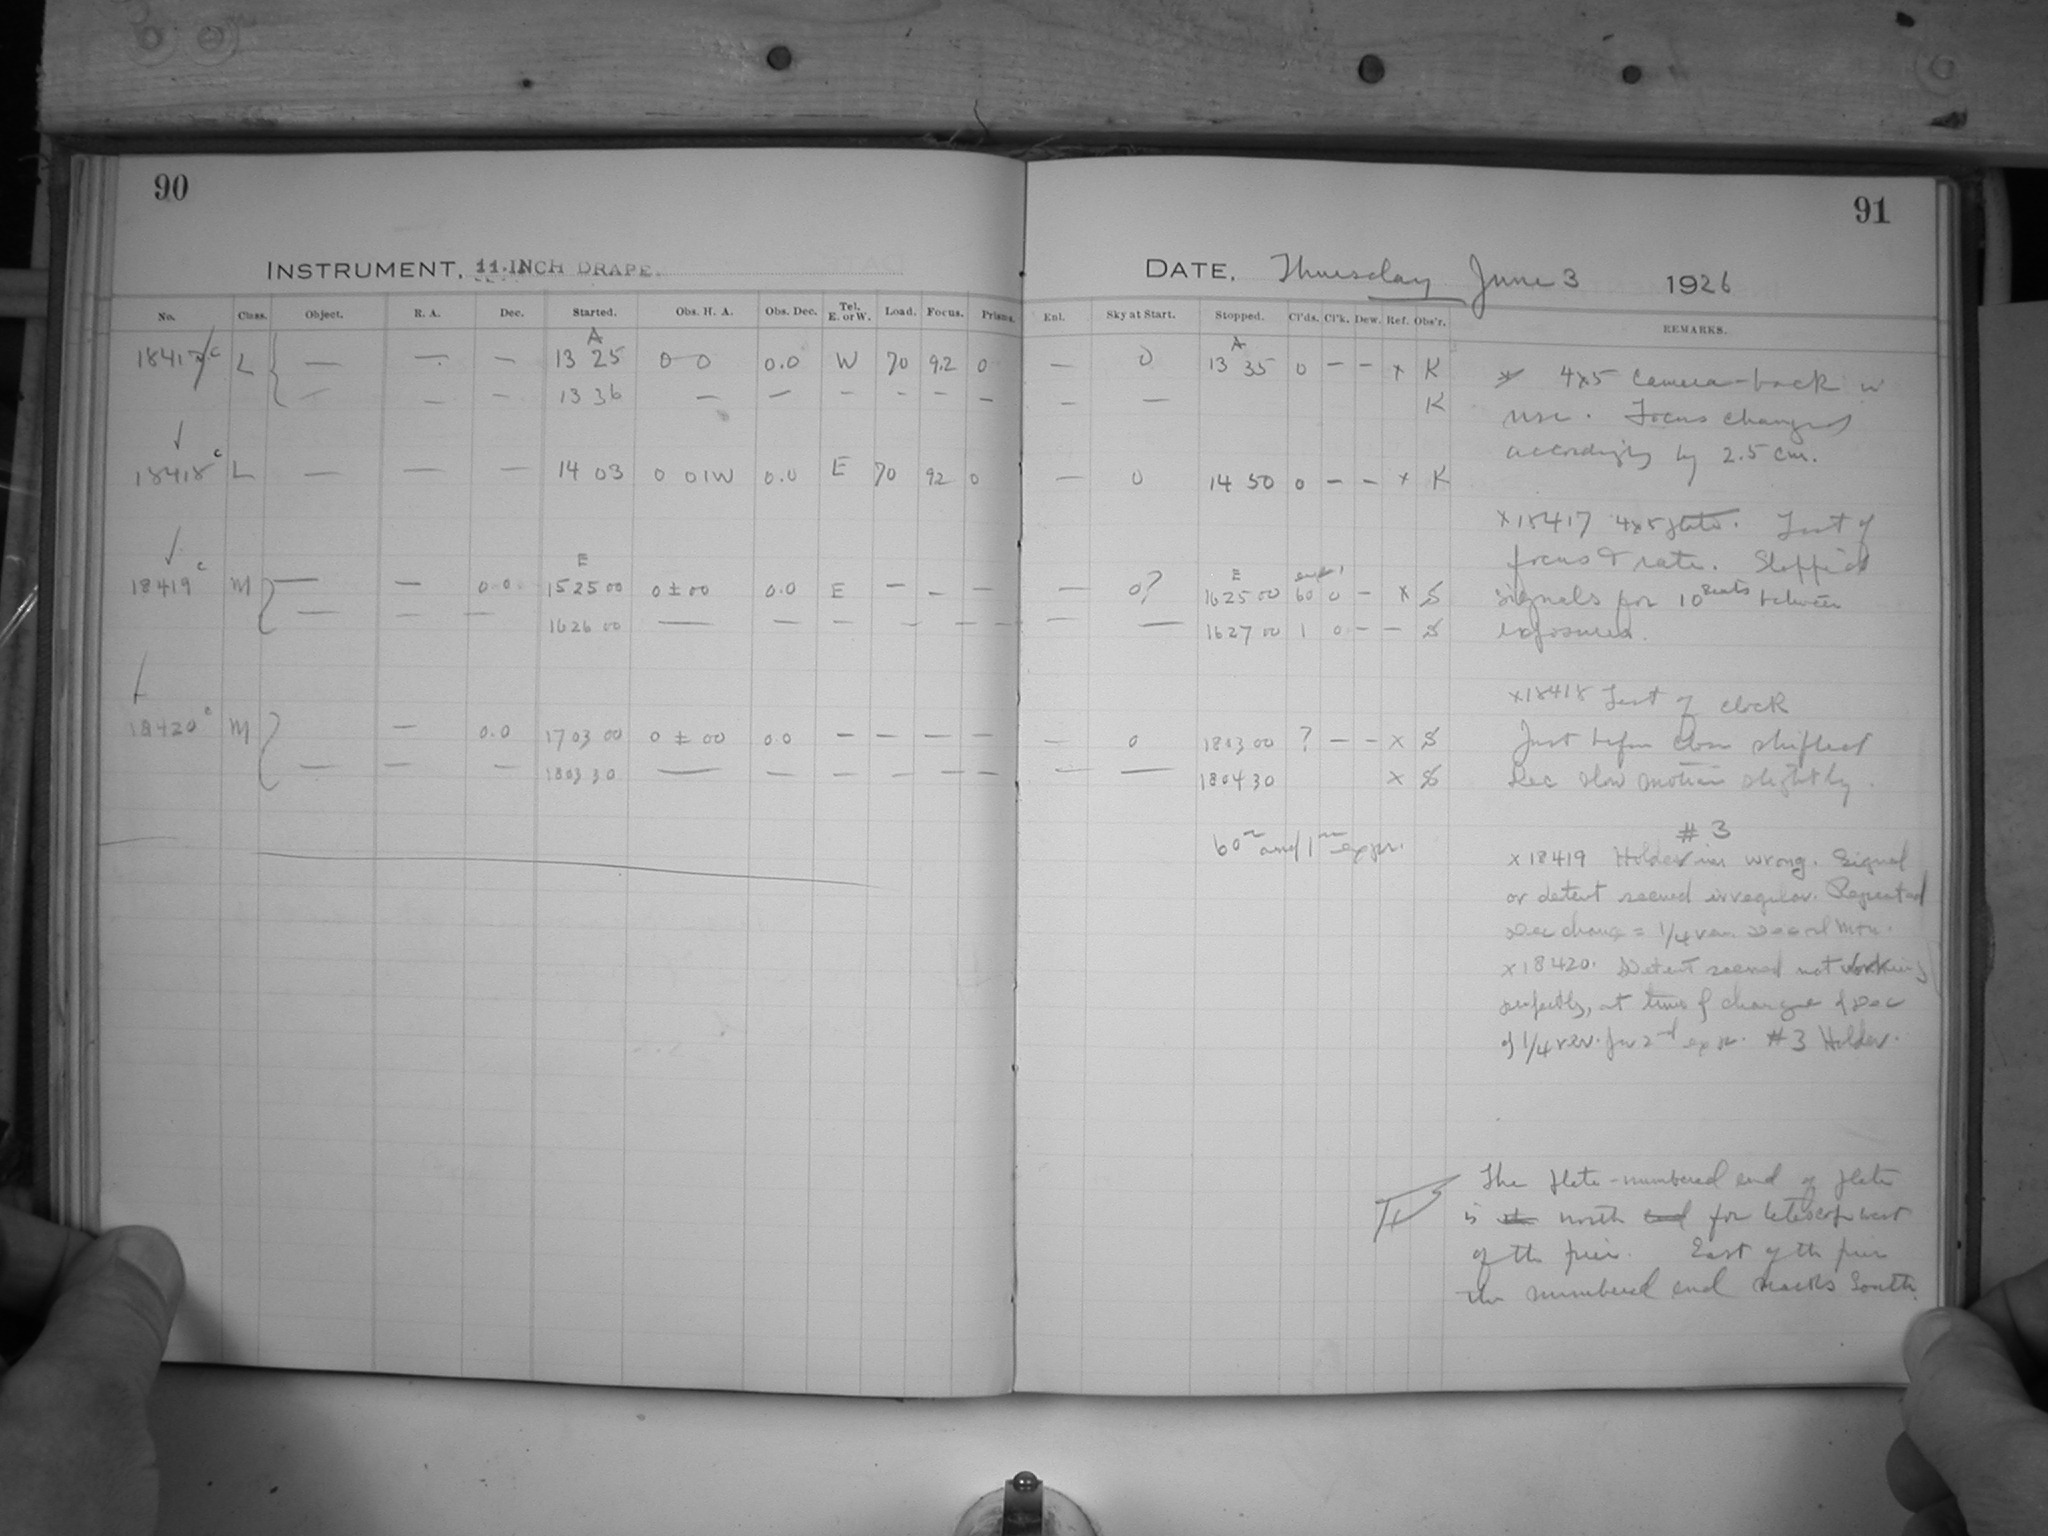 90
INSTRUMENT, 11-INCH DRAPE.
No. Class. Object. R. A. Dec. Started. Obs. H. A. Obs. Dec. Tel. E. or W. Load. Focus. Prisms.
A
18417 c L — — — 13 25 0 0 0.0 W 70 9.2 0
— — — 13 36 — — — — — —
18418 c L — — — 14 03 0 01W 0.0 E 70 92 0
E
18419 c M — — 0.0 15 25 00 0 ± 00 0.0 E — — —
— — — 16 26 00 — — — — — —
18420 c M — 0.0 17 03 00 0 ± 00 0.0 — — — —
— — — 18 03 30 — — — — — —
91
DATE, Thursday June 3 1926
Enl. Sky at Start. Stopped. Cl'ds. Cl'k. Dew. Ref. Obs'r. REMARKS.
A
— 0 13 35 0 — — x K
— — K
— 0 14 50 0 — — x K
E
— 0? 16 25 00 60 0 — x S
— — 16 27 00 1 0 — — S
— 0 18 03 00 ? — — x S
— — 18 04 30 x S
60m and 1m expr.
x 4x5 Camera-back in
use. Focus changed
accordingly by 2.5 cm.
x18417 4x5 plate. Test of
focus & rate. Stopped
signals for 10 beats between
exposures.
x18418 Test of clock
Just before close shifted
Dec slow motion slightly.
#3
x 18419 Holder in wrong. Signal
or detent seemed irregular. Repeated
Dec change = 1/4 rev.
x18420. Detent seemed not working
perfectly, at time of change of Dec
of 1/4 rev. for 2nd exp. #3 Holder.
The plate-numbered end of plate
is the north end for telescope west
of the pier. East of the pier
the numbered end marks South.